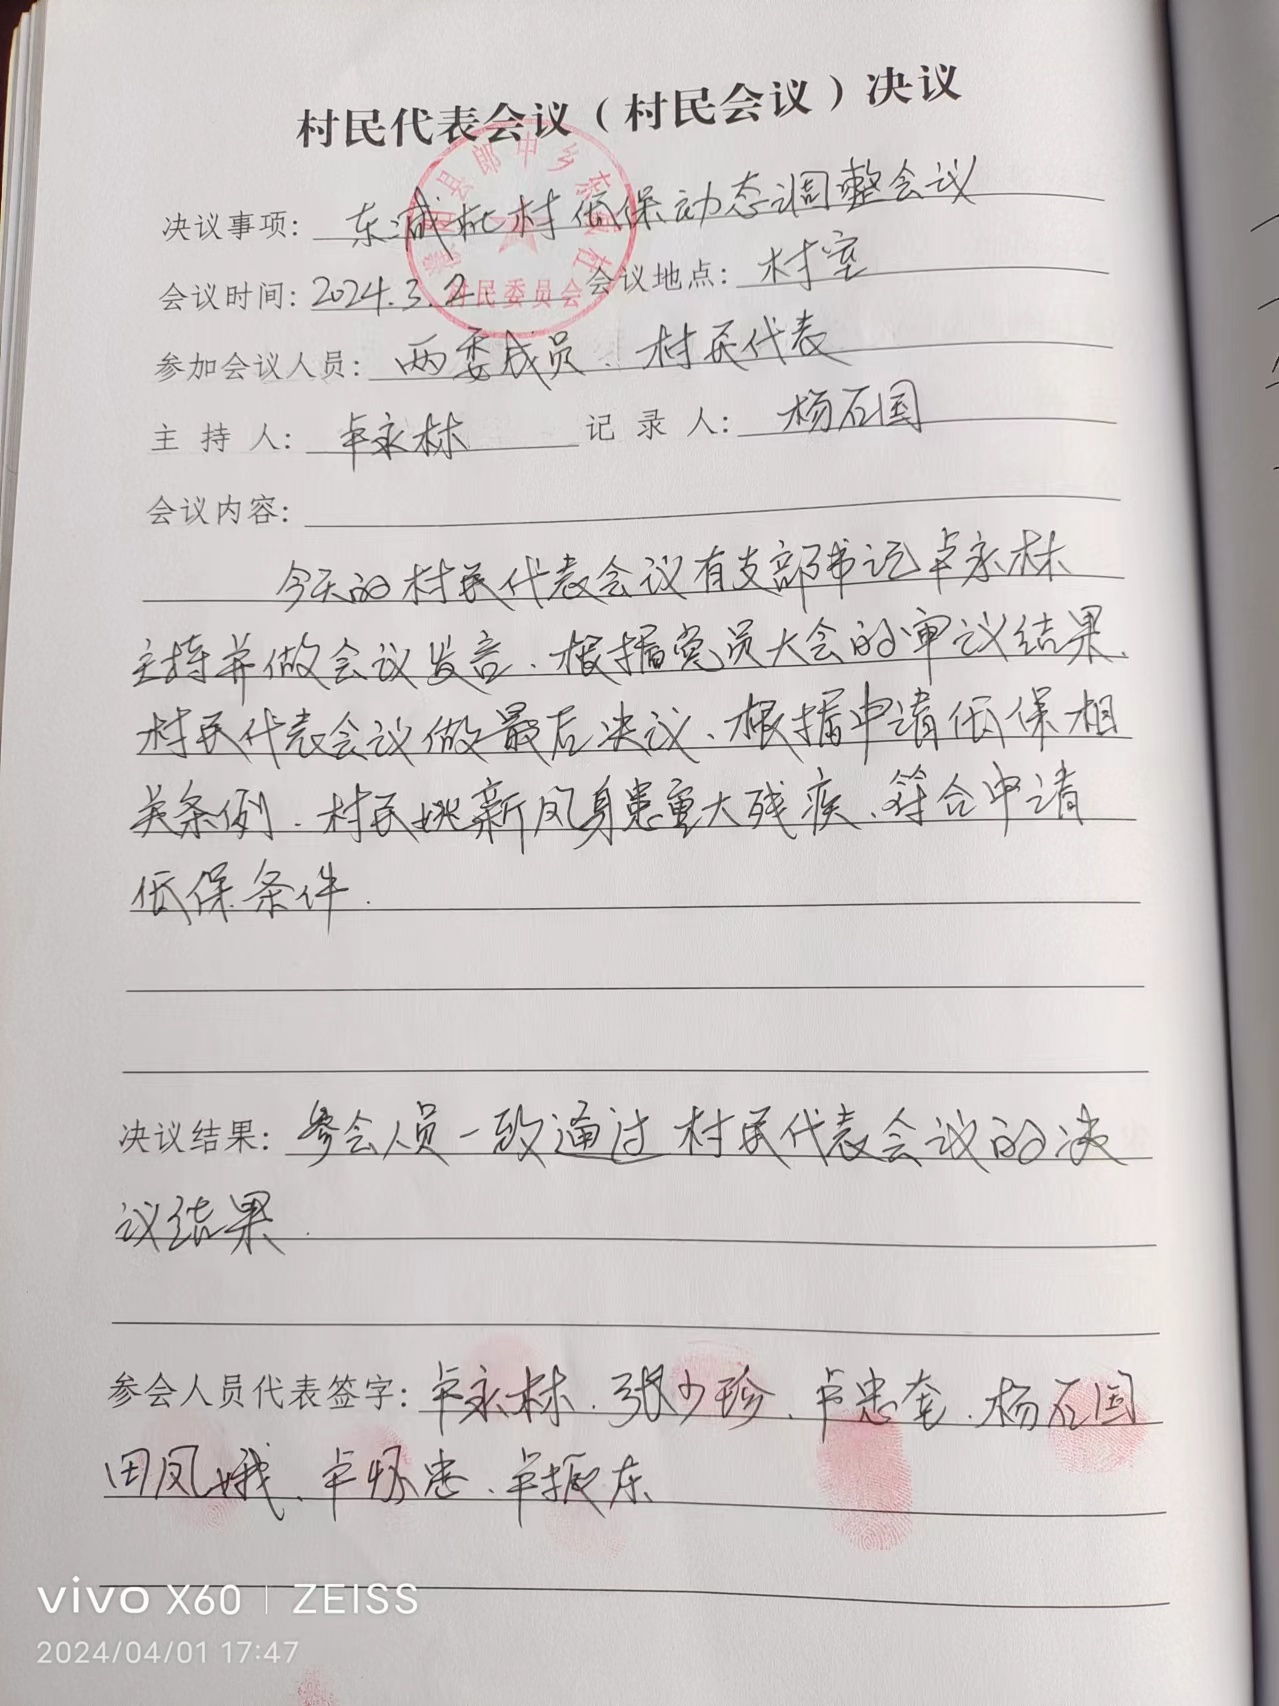 村民代表会议（村民会议）决议
决议事项：东减北村低保动态调整会议
会议时间：2024.3.2 会议地点：村室
参加会议人员：两委成员、村民代表
主持人：卓永林 记录人：杨石国
会议内容：
今天的村民代表会议有支部书记卓永林
主持并做会议发言、根据党员大会的审议结果、
村民代表会议做最后决议、根据申请低保相
关条例、村民姚新凤身患重大残疾、符合申请
低保条件.
决议结果：参会人员一致通过村民代表会议的决
议结果.
参会人员代表签字：卓永林、张少珍、卢忠奎、杨石国
田凤娥、卓怀忠、卓振东
县郎中乡
村民委员会
vivo X60 | ZEISS
2024/04/01 17:47